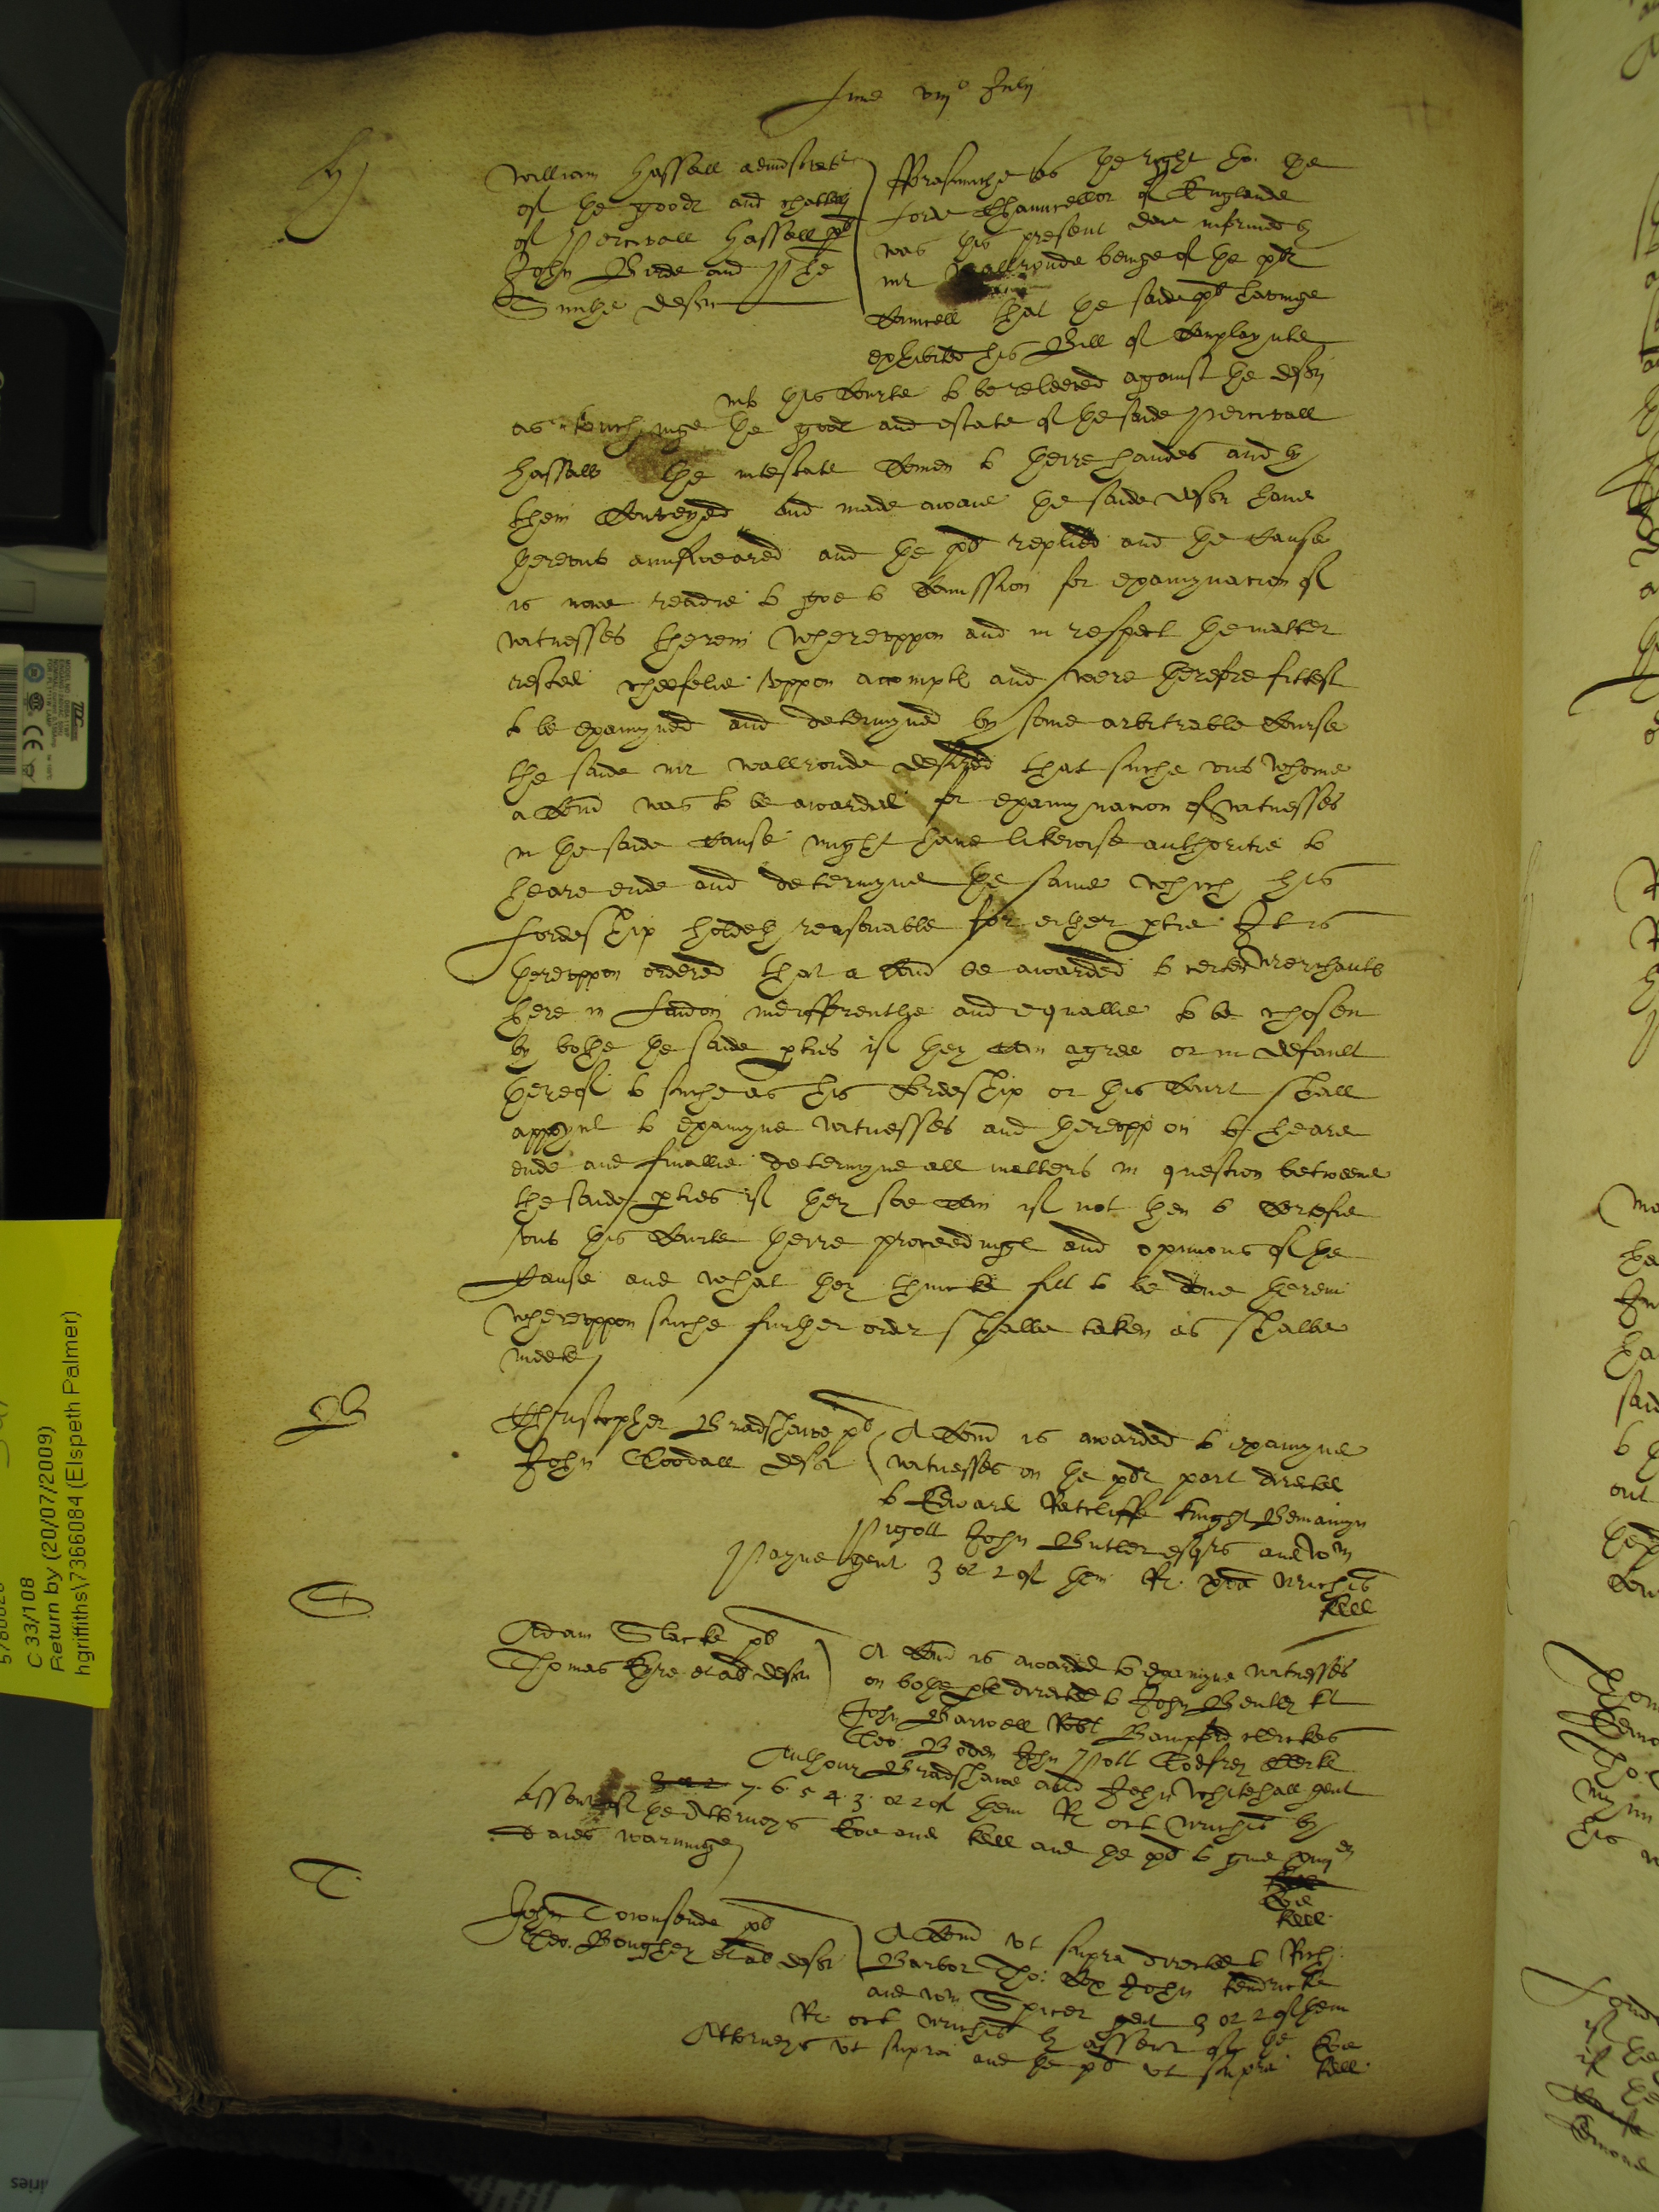 Lune viijo Julij
H
William Hassall administrator
of the goodes and chattells
of Percivall Hassall pl
John Birde and
Smithe deftes
Fforasmuche as the right ho: the
Lorde Chauncellor of Englande
was this present daie informed by
mr Wallronde beinge of the plt
Councell that the saide pl havinge
exhibited his Bill of Complaynte
into this Courte to be releeved against the deftes
as touchinge the goodes and estate of the saide Percivall
Hassall the intestate Comen to theire handes and by
them Conveyed and made awaie the saide deftes have
thereunto aunsweared and the pl replied and the Cause
is nowe readie to goe to Comission for examynacion of
witnesses therein Whereuppon and in respect the matter
rested cheefelie uppon accompte and were therefore fittest
to be examyned and determyned by some arbitrable Course
the saide mr Wallronde desired that suche unto whome
a Comd was to be awarded for examynacion of witnesses
in the saide Cause might have likewise authoritie to
heare ende and determyne the same which his
Lordeship holdeth reasonable for either ptie It is
thereuppon ordered that a Comd be awarded to certen merchauntes
here in London indifferentlie and equallie to be chosen
by bothe the saide pties if they Can agree or in default
thereof to suche as his Lordeship or this Court shall
appoynt to examyne witnesses and thereuppon to heare
ende and finallie determyne all matters in question betweene
the saide pties if they soe Can if not then to Certefie
unto this Courte theire proceedinges and opinions of the
Cause and what they thincke fitt to be done therein
whereuppon suche further order shalbe taken as shalbe
meete
B
Christopher Bradshawe pl
John Goodall deft
A Comd is awarded to examyne
witnesses on the plt part directed
to Edward Ratcliffe knight Beniamyn
Pigott John Butler esqrs and Wm
Payne gent 3 or 2 of them Re: michis
kell
S
Adam Slacke pl
Thomas Eyre et al deftes
A Comd is awarded to examyne witnesses
on bothe ptes directed to John Bentley kt
John Barwell Robt Bamford clerkes
Geo: Boden John Pott Godfrey Clerke
Anthony Bradshawe and John Whitehall gent
7. 6. 5 4. 3. or 2 of them Re oct michis by
assent of the Attorneys Coe and kell and the pl to give
daies warninge
Coe
kell
T
John Townsende pl
Geo: Boughey et al deftes
A Comd ut supra directed to Rich:
Barbor Tho: Cox John kendricke
and Wm Spicer gent 3 or 2 of them
Re oct michis by assent of the Coe
Attorneys ut supra and the pl ut supra kell
C 33/108
Return by (20/07/2009)
hgriffiths\7366084 (Elspeth Palmer)